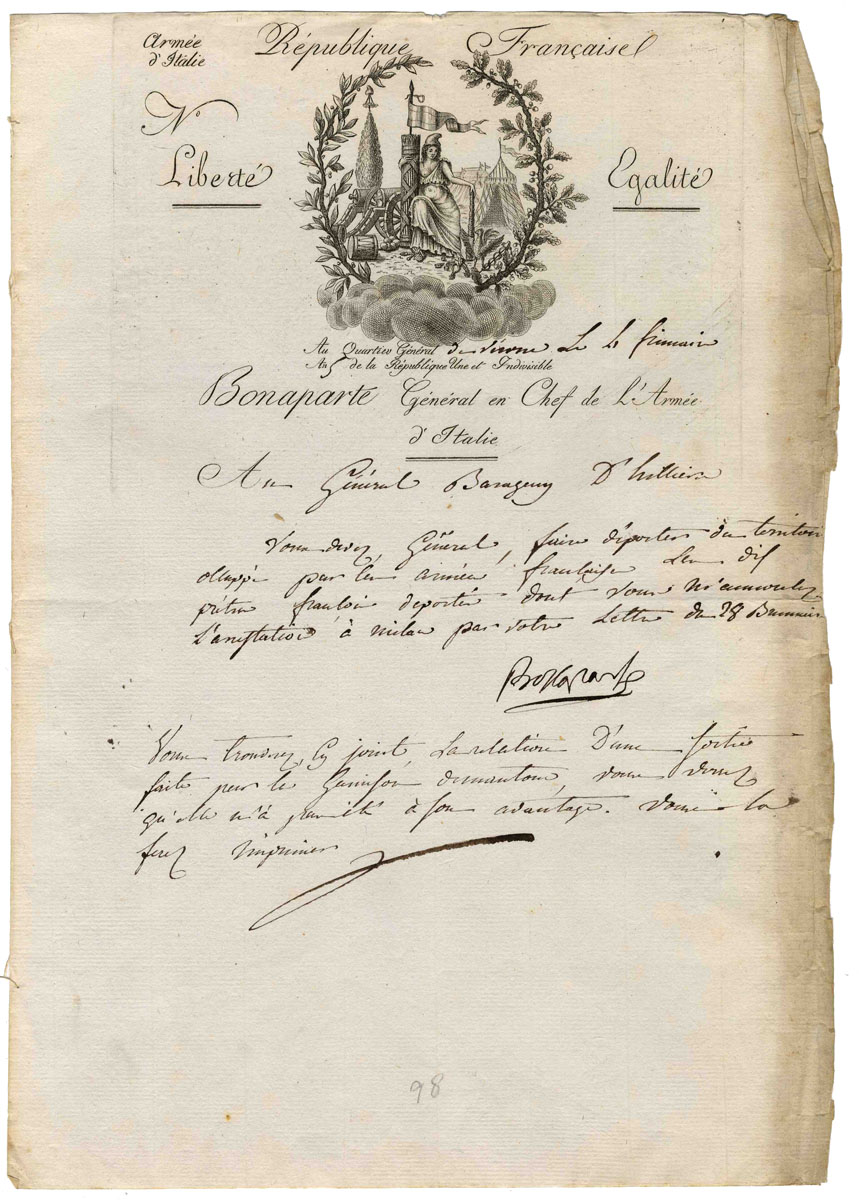 Armée
d'Italie
République Française
N°
Liberté
Egalité
Au Quartier Général de verone Le 6 frimaire
An 5 de la République Une et Indivisible
Bonaparte Général en Chef de L'Armée
d'Italie
Au Général Baraguey D'hilliers
Vous devez, Général, faire déporter du territoire
occuppé par les armées françaises Les dix
prêtres françois deportés dont vous m'annoncez
L'arrestation à milan par votre Lettre du 28 Brumaire
Bonaparte
Vous trouverez, Cy joint, La relation D'une sortie
faite par la Garnison de mantoue, vous verrez
qu'elle n'a pas été à son avantage. vous la
ferez imprimer
98